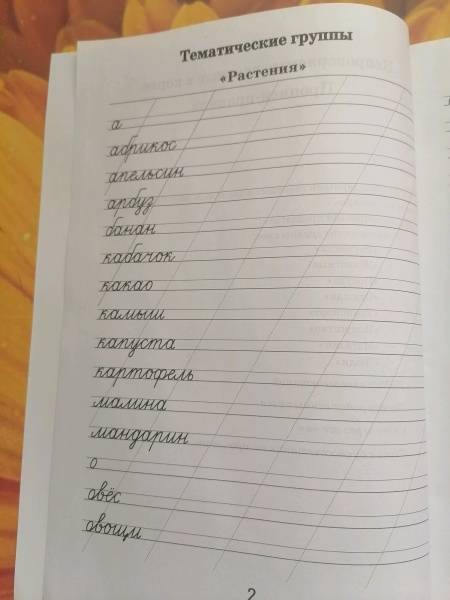 Тематические группы
«Растения»
а
абрикос
апельсин
арбуз
банан
кабачок
какао
камыш
капуста
картофель
малина
мандарин
о
овёс
овощи
2